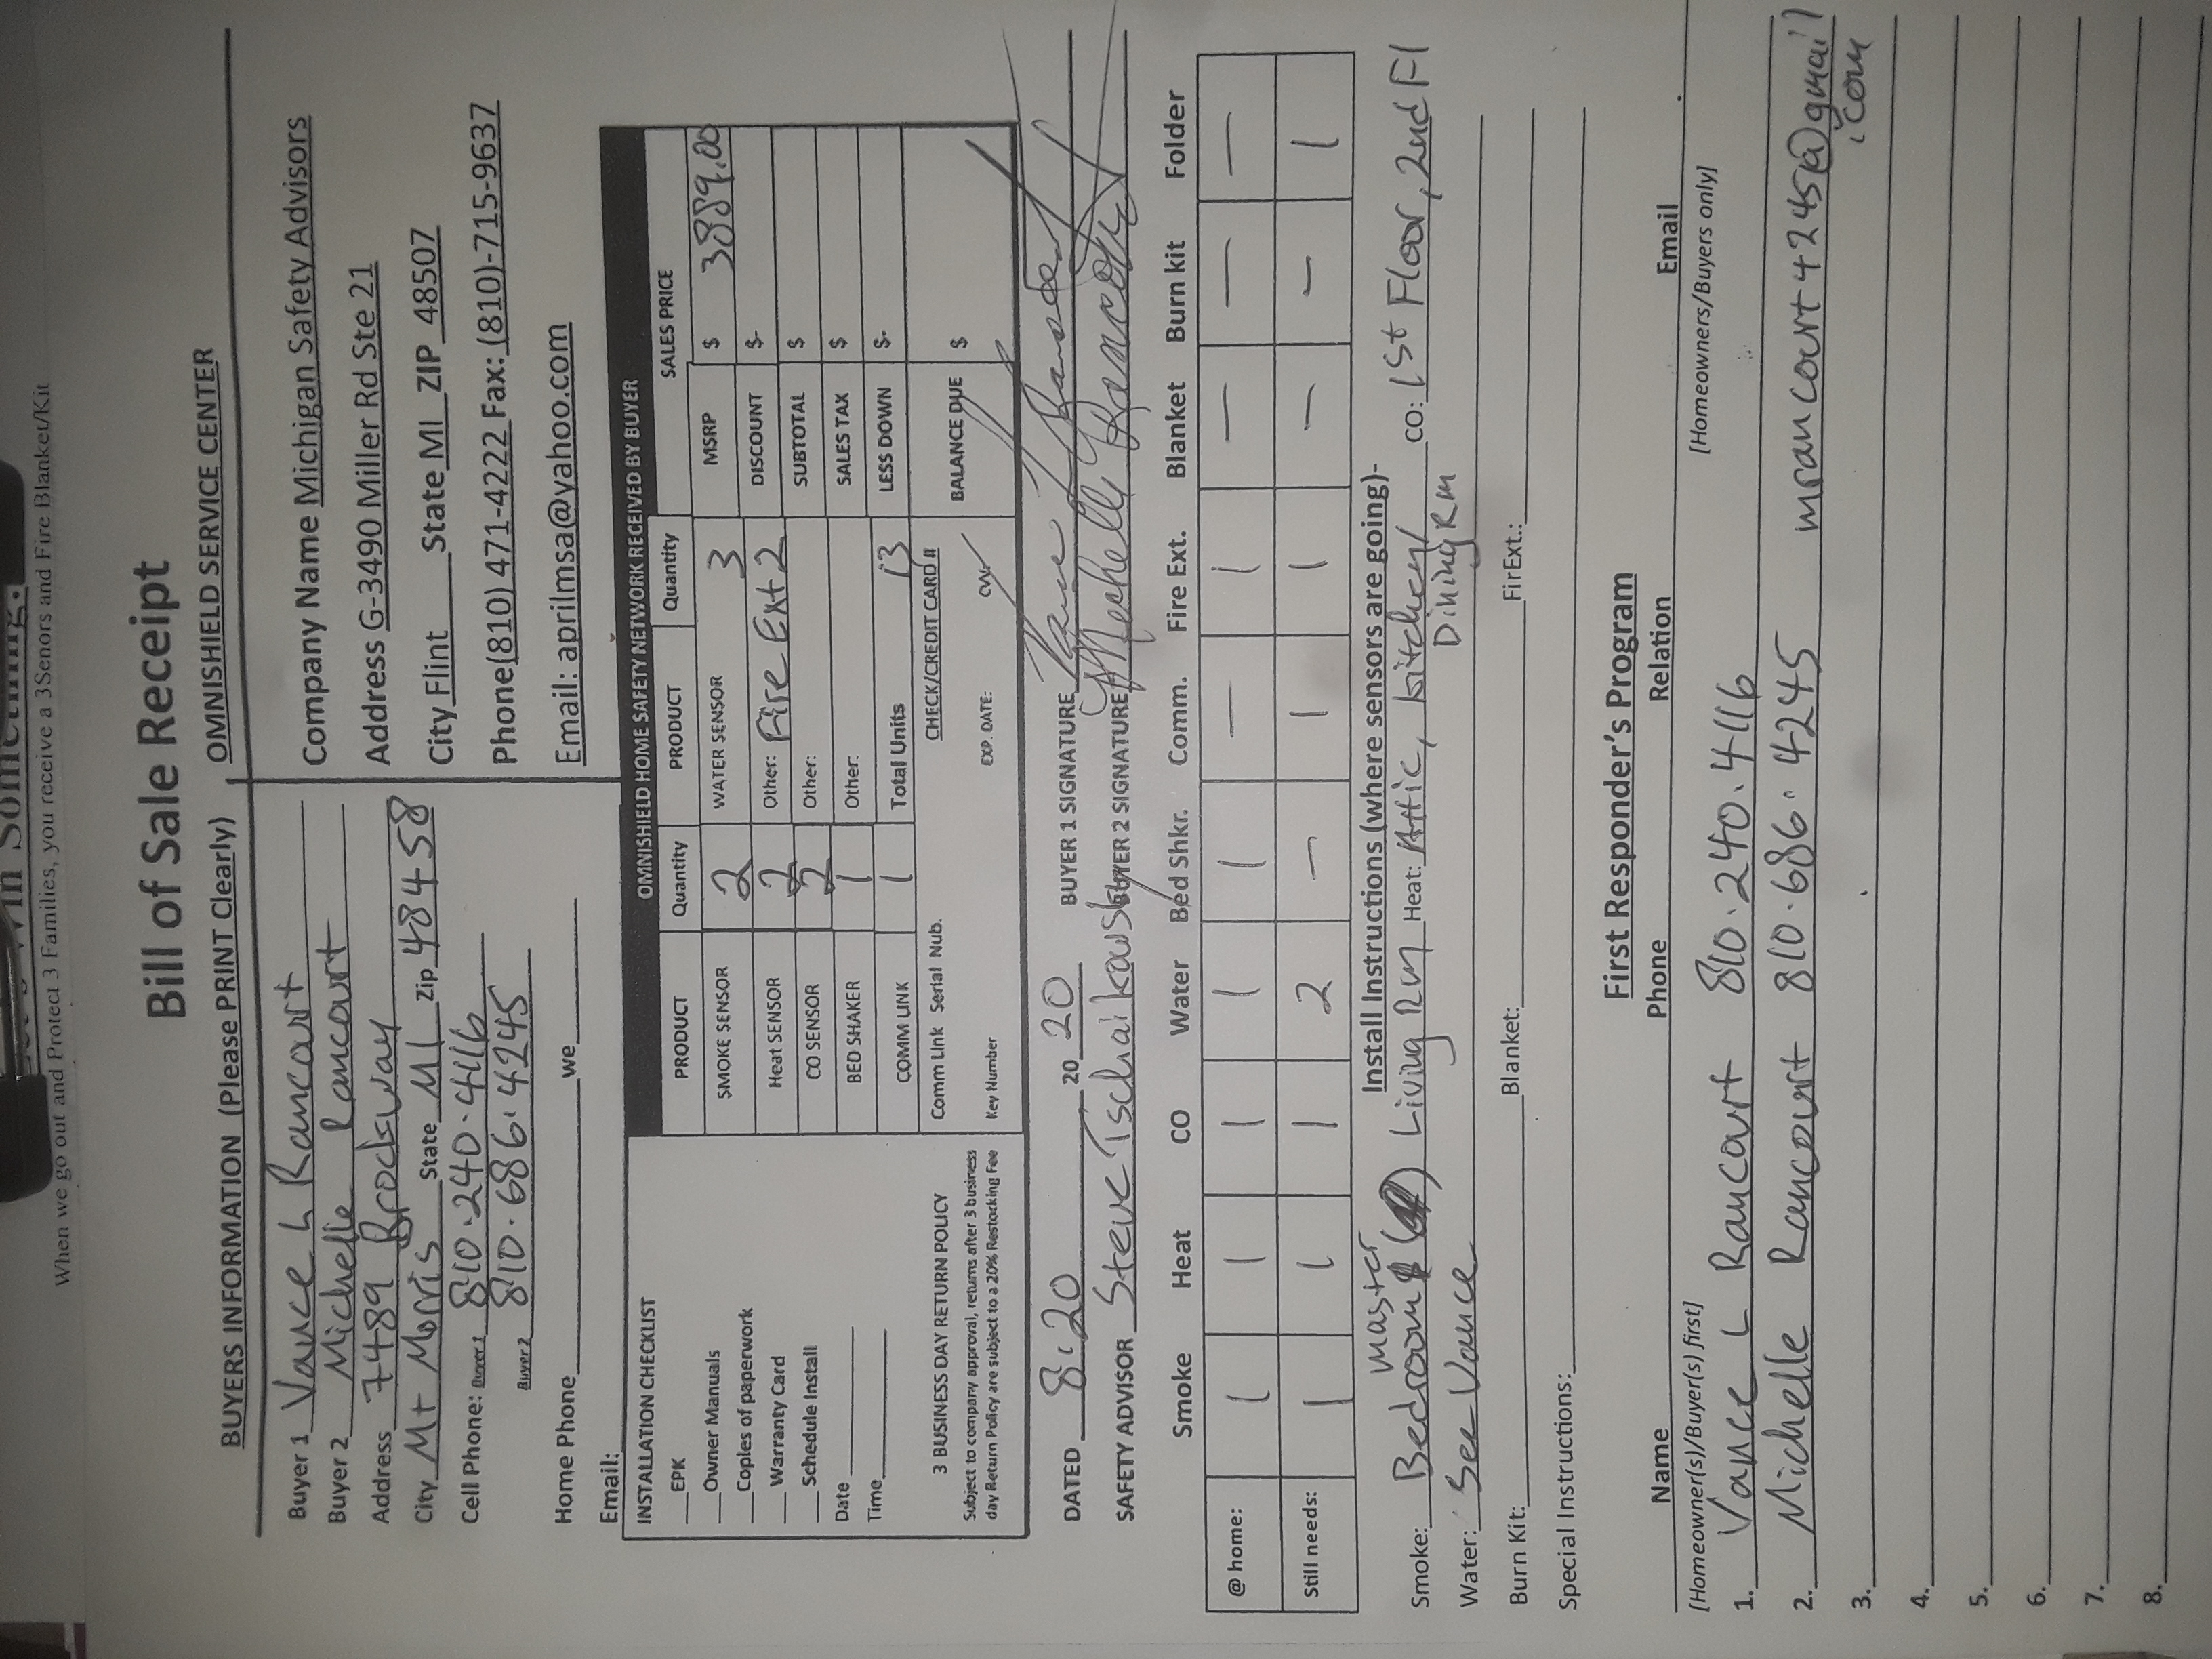 When we go out and Protect 3 Families, you receive a 3Senors and Fire Blanket/Kit
Bill of Sale Receipt
BUYERS INFORMATION (Please PRINT Clearly)
Buyer 1 Vance L Rancourt
Buyer 2 Michelle Rancourt
Address 7489 Brockway
City Mt Morris State MI Zip 48458
Cell Phone: Buyer 1 810.240.4116
Buyer 2 810.686.4245
Home Phone we
Email:
OMNISHIELD SERVICE CENTER
Company Name Michigan Safety Advisors
Address G-3490 Miller Rd Ste 21
City Flint State MI ZIP 48507
Phone(810) 471-4222 Fax: (810)-715-9637
Email: aprilmsa@yahoo.com
INSTALLATION CHECKLIST
EPK
Owner Manuals
Copies of paperwork
Warranty Card
Schedule Install
Date
Time
3 BUSINESS DAY RETURN POLICY
Subject to company approval, returns after 3 business
day Return Policy are subject to a 20% Restocking Fee
OMNISHIELD HOME SAFETY NETWORK RECEIVED BY BUYER
PRODUCT Quantity PRODUCT Quantity SALES PRICE
SMOKE SENSOR 2 WATER SENSOR 3 MSRP $ 3889.00
Heat SENSOR 2 Other: Fire Ext 2 DISCOUNT $-
CO SENSOR 2 Other: SUBTOTAL $
BED SHAKER 1 Other: SALES TAX $
COMM LINK 1 Total Units 13 LESS DOWN $-
Comm Link Serial Nub. CHECK/CREDIT CARD # BALANCE DUE $
Key Number EXP. DATE: CVV
DATED 8.20 20 20 BUYER 1 SIGNATURE
SAFETY ADVISOR Steve Tschaikowsky BUYER 2 SIGNATURE Mechelle Rancourt
Smoke Heat CO Water Bed Shkr. Comm. Fire Ext. Blanket Burn kit Folder
@ home: 1 1 1 1 1 — 1 — — —
Still needs: 1 1 1 2 — 1 1 — — 1
Install Instructions (where sensors are going)-
Smoke: Master Bedroom Living Rm Heat: Attic, kitchen/ Dining Rm CO: 1st Floor, 2nd Fl
Water: See Vance
Burn Kit: Blanket: FirExt.:
Special Instructions:
First Responder's Program
Name Phone Relation Email
[Homeowner(s)/Buyer(s) first] [Homeowners/Buyers only]
1. Vance L Rancourt 810.240.4116
2. Michelle Rancourt 810.686.4245 mrancourt4245@gmail.com
3.
4.
5.
6.
7.
8.